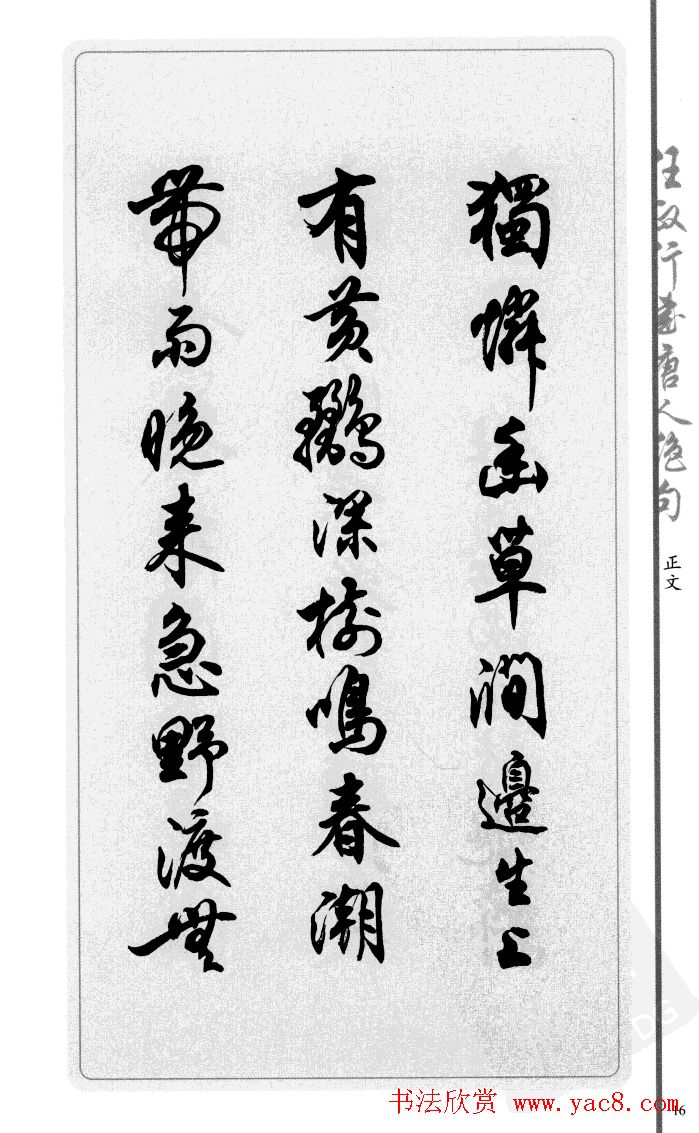 獨憐幽草澗邊生上
有黄鸝深樹鳴春潮
帶雨晚來急野渡無
任政行書唐人絕句
正文
书法欣赏 www.yac8.com
16